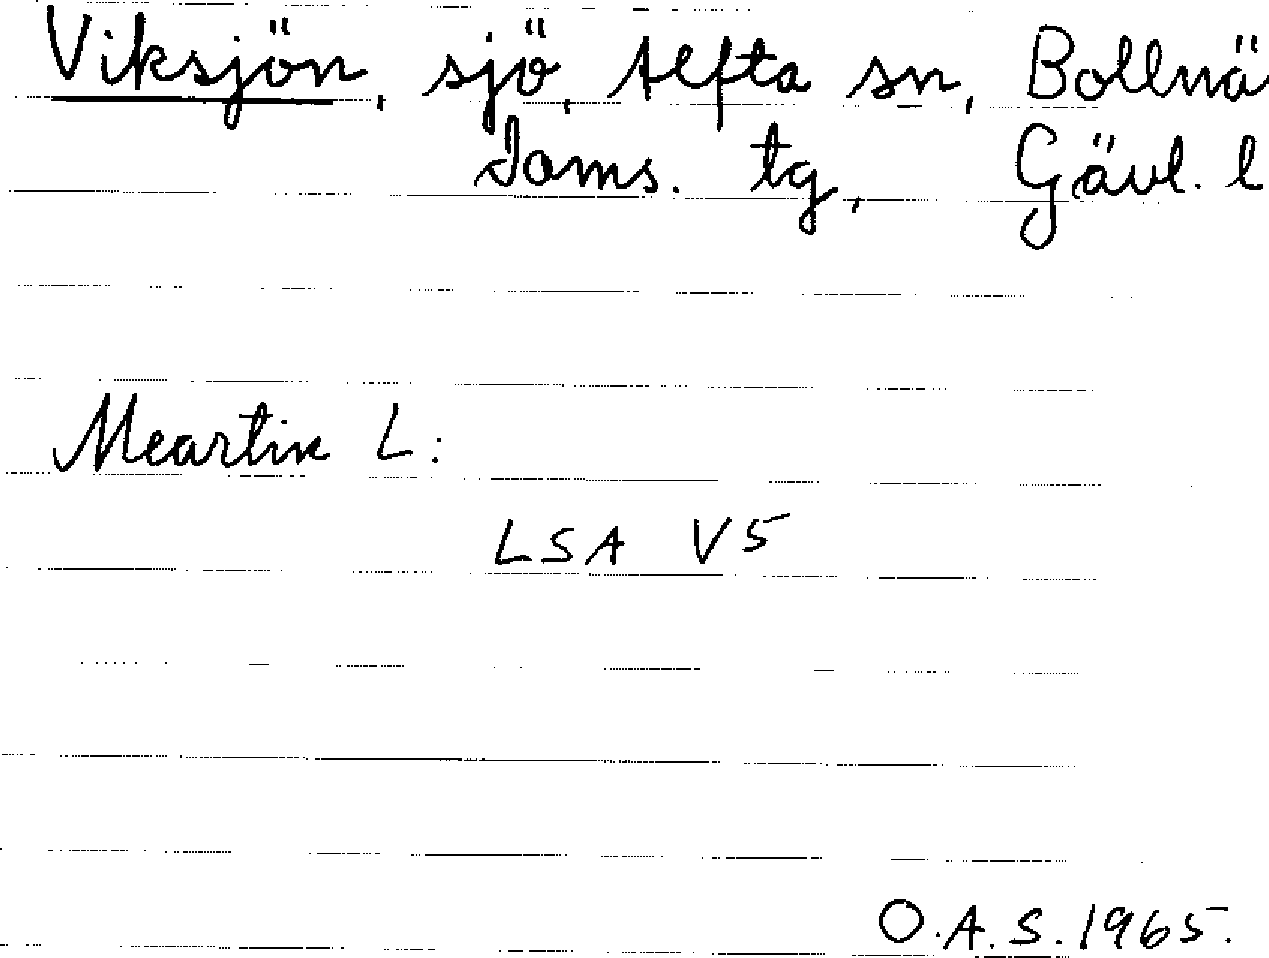 Viksjön, sjö, Alfta sn, Bollnä
doms. tg, Gävl. l
Meartin L:
LSA V5
O.A.S. 1965.